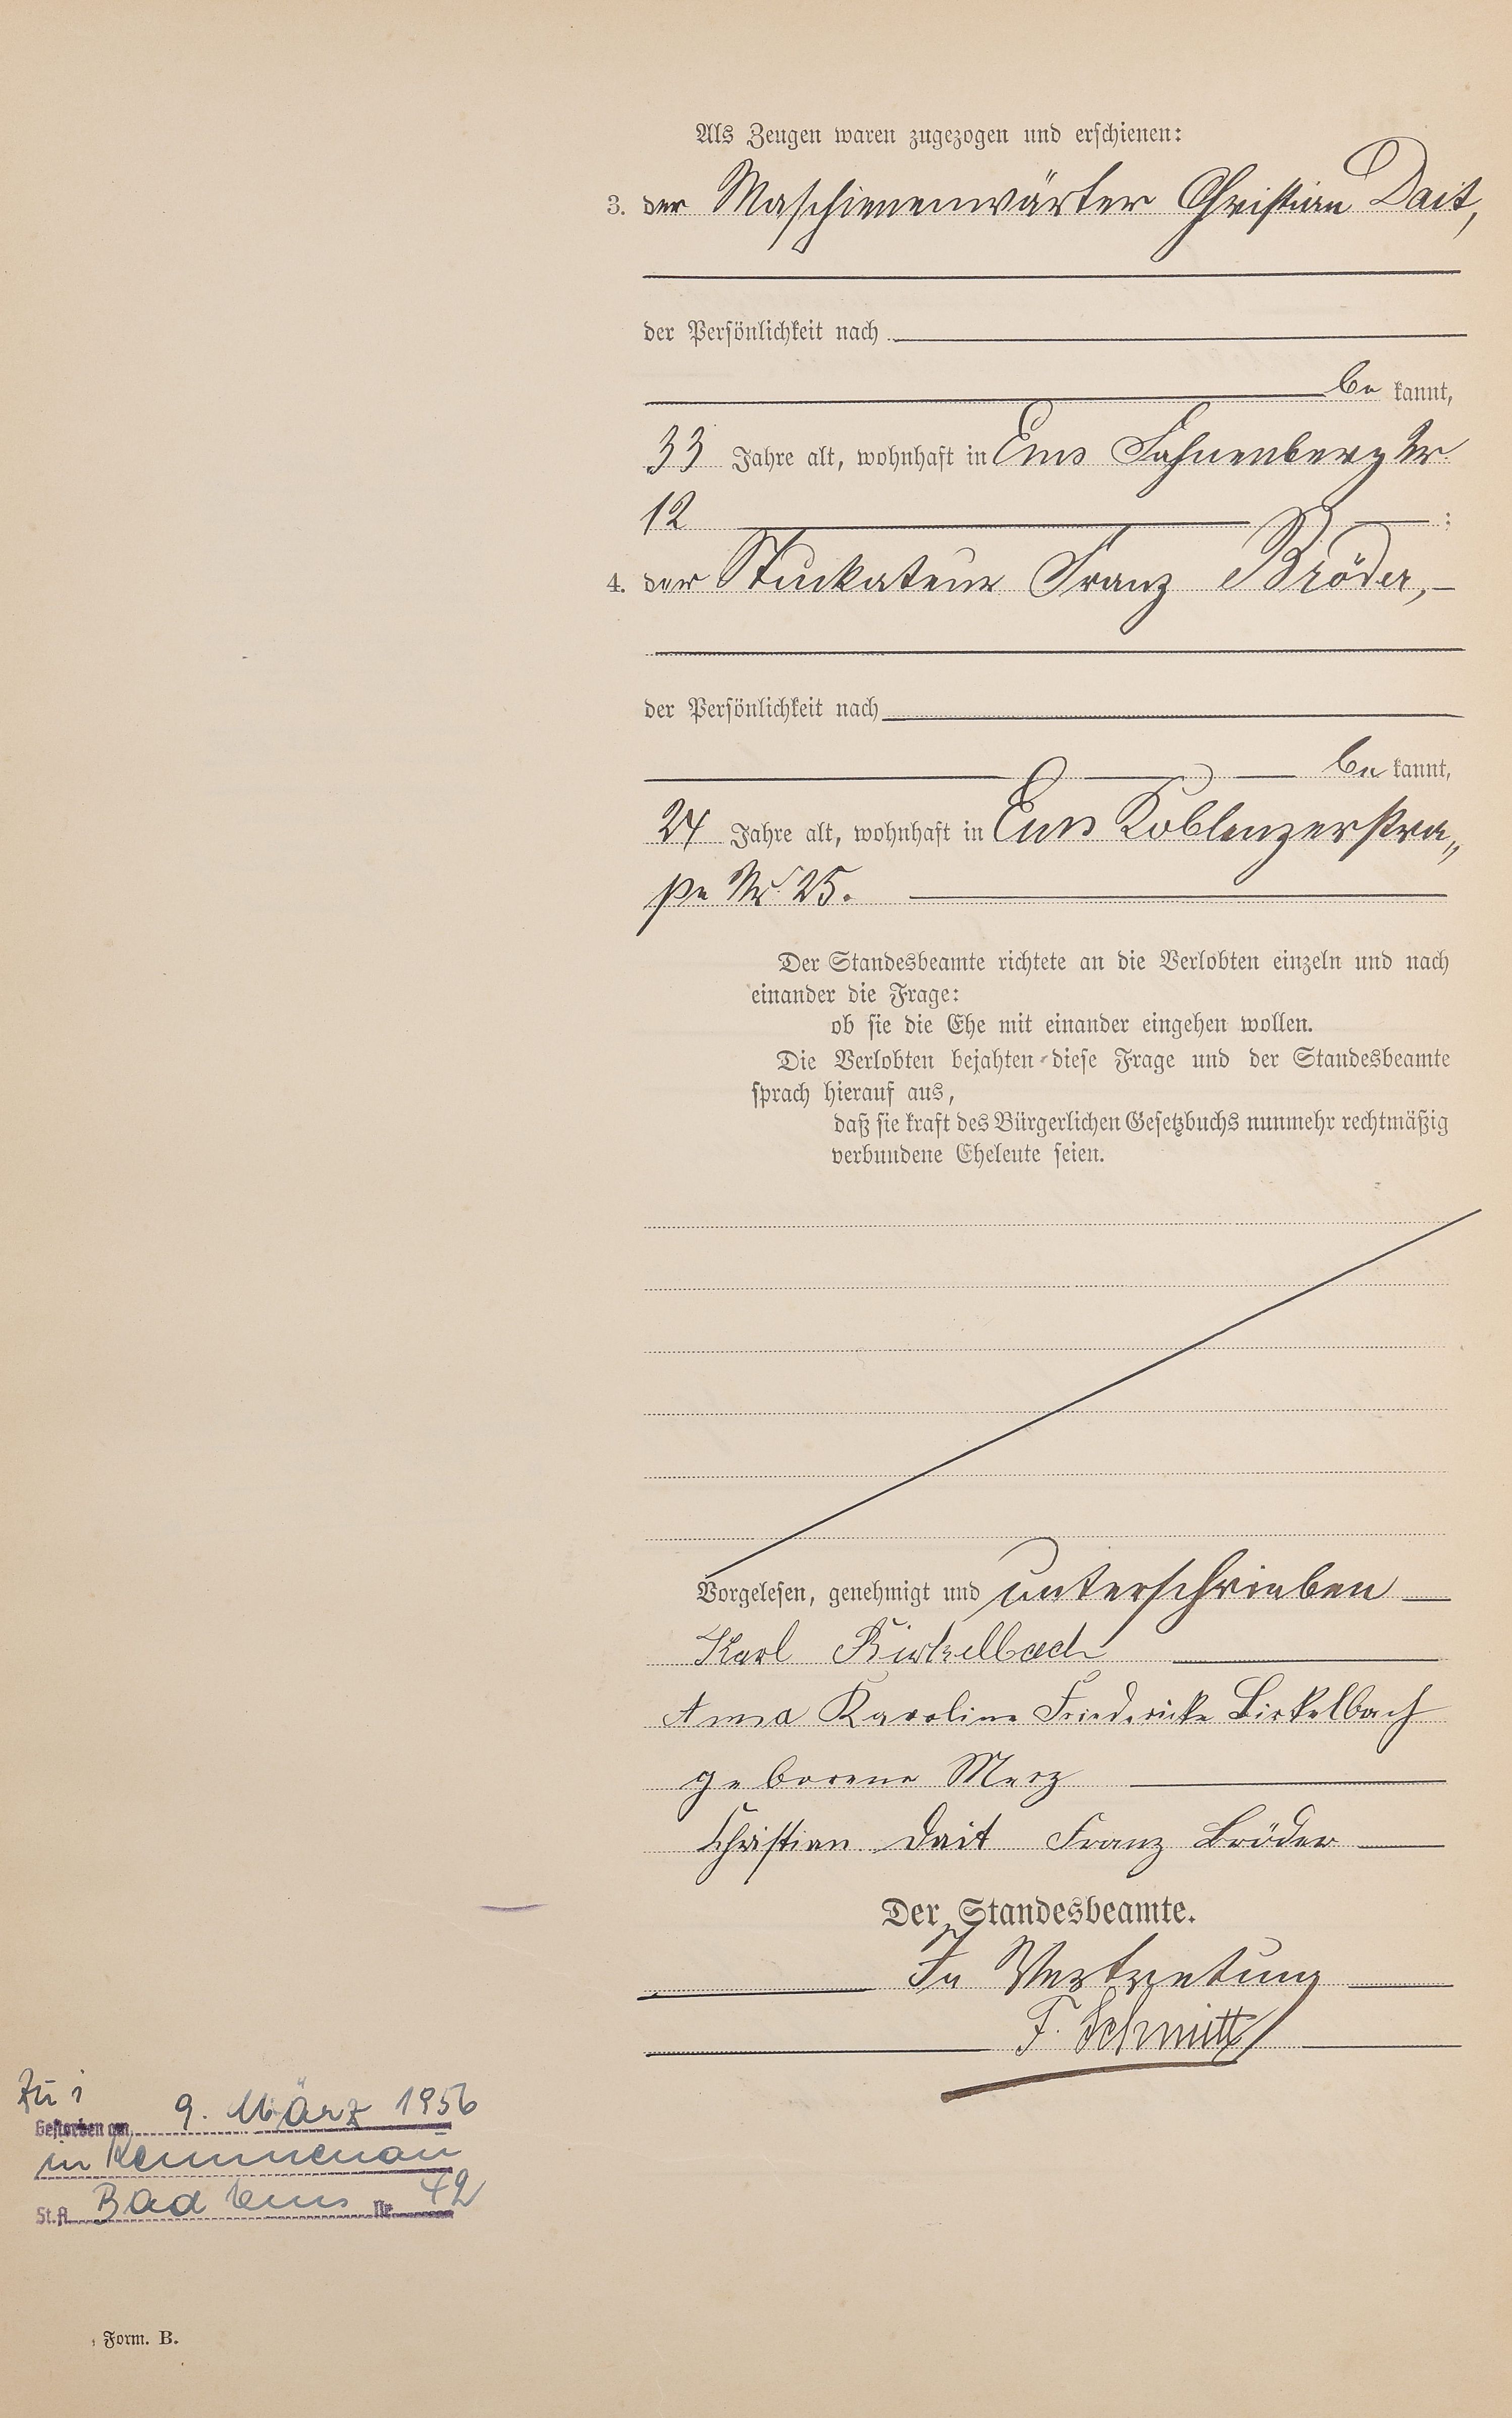 Als Zeugen waren zugezogen und erschienen:
3. der Maschienenwärter Christian Dait,
der Persönlichkeit nach
be kannt,
33 Jahre alt, wohnhaft in Ems Fahnenberg Nr
12 :
4. der Stuckateur Franz Bröder,
der Persönlichkeit nach
be kannt,
24 Jahre alt, wohnhaft in Ems Koblenzerstra„
ße Nr 25.
Der Standesbeamte richtete an die Verlobten einzeln und nach
einander die Frage:
ob sie die Ehe mit einander eingehen wollen.
Die Verlobten bejahten diese Frage und der Standesbeamte
sprach hierauf aus,
daß sie kraft des Bürgerlichen Gesetzbuchs nunmehr rechtmäßig
verbundene Eheleute seien.
Vorgelesen, genehmigt und unterschrieben
Karl Birkelbach
Anna Karoline Friedericke Birkelbach
geborene Merz
Christian Dait Franz Bröder
Der Standesbeamte.
In Vertretung
F. Schmitt
Zu 1
Gestorben am 9. März 1956
in Kemmenau
St.A. Bad Ems Nr. 42
Form. B.